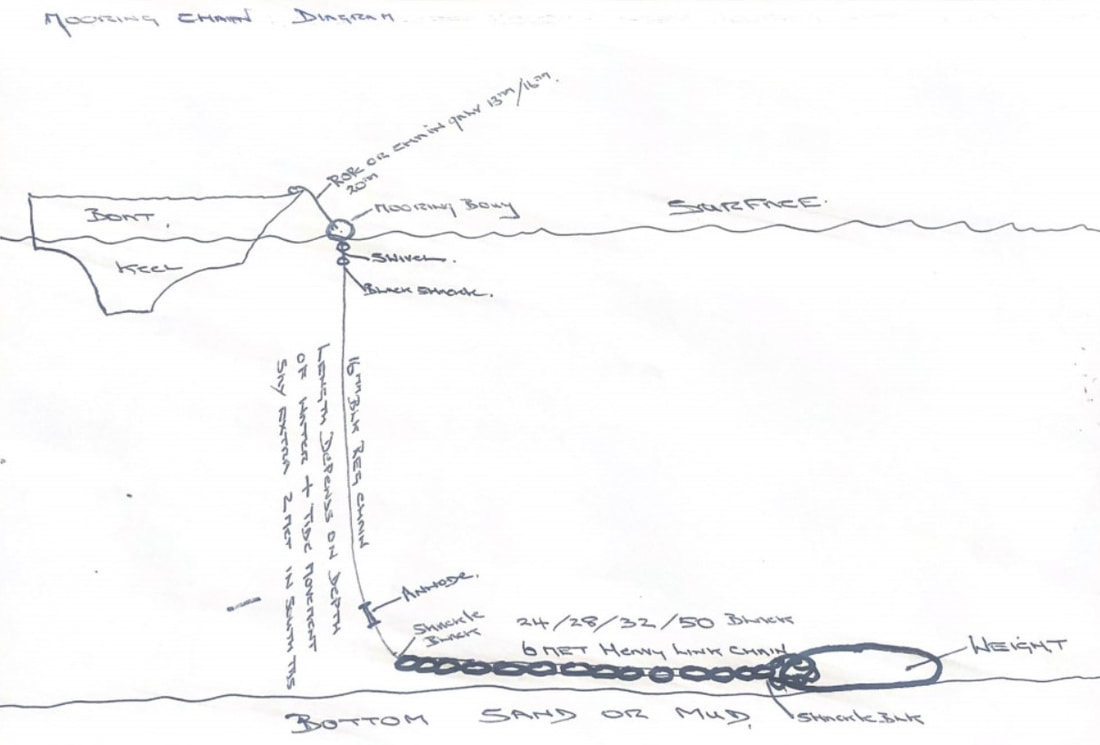 MOORING CHAIN DIAGRAM
ROPE OR CHAIN GALV 13m/16m.
20m
MOORING BOUY
SURFACE.
BOAT.
KEEL
SWIVEL.
BLACK SHACKLE.
16mm BLK REG CHAIN
LENGTH DEPENDS ON DEPTH
OF WATER + TIDE MOVEMENT
SAY EXTRA 2 MET IN SOUTH TAS
ANNODE.
SHACKLE
BLACK
24/28/32/50 BLACK
6 MET HEAVY LINK CHAIN
WEIGHT
SHACKLE BLK
BOTTOM SAND OR MUD.